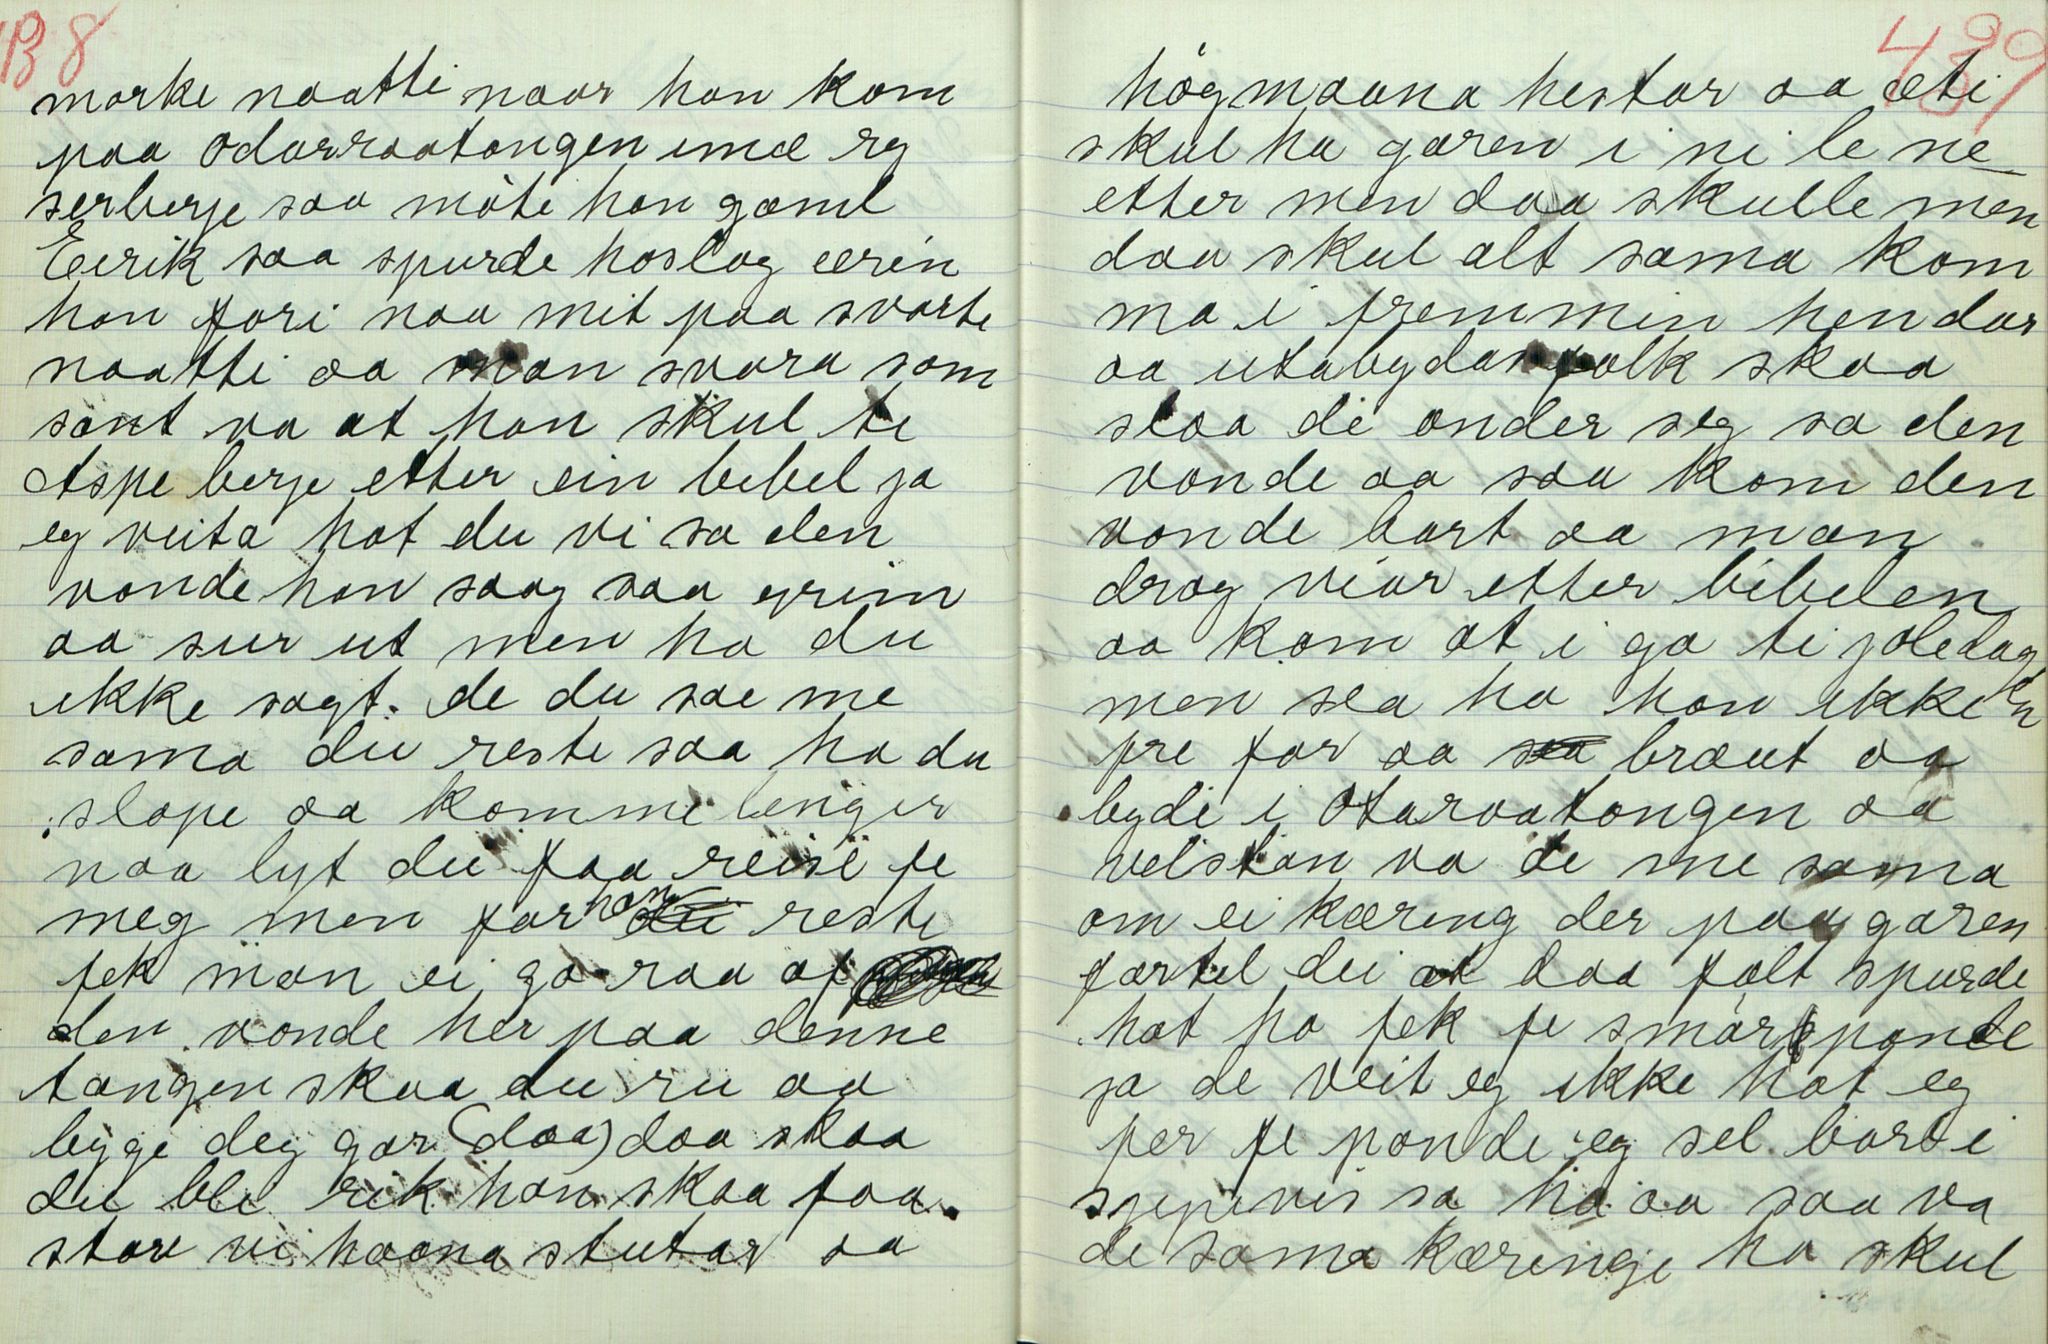 B 8
morke naatti naar han kom
paa Odarraatongen imæ rg
serberje saa møte han gaml
Eerik saa spurde hoslag ærin
han fori naa mit paa svarte
naatti aa man svara som
sant va at han skul te
Aspe berje etter ein bibel ja
eg veita hot du vi sa den
vonde han saag saa grim
aa sur ut men ha du
ikke sagt de du sae me
sama du reste saa ha du
slope aa komme lenger
naa lyt du faa reise fe
meg men for han reste
fek man ei go raa af
den vonde her paa denne
tangen skaa du ru aa
byge deg gar (daa) daa skaa
du bli rik han skaa faa
store vi haana stutar aa
489
høgmaana hestar aa æti
skul ha garen i ni le ne
etter men daa skulle men
daa skul alt sama kom
ma i fremmin hendar
aa utabygdas folk skaa
slaa de onder seg sa den
vonde aa saa kom den
vonde bort aa man
drog viar etter bibelen
aa kom at i ga ti joledag
en
men sea ha han ikke
fre for aa braut aa
bydi i Otaraatongen aa
velstan va de me sama
om ei kæring der paa garen
fortel dei at daa folt spurde
hot ho fek fe smørponde
ja de veit eg ikke hot eg
fer fe ponde eg sel bort i
sjepivis sa ho aa saa va
de sama kæringe ho skul